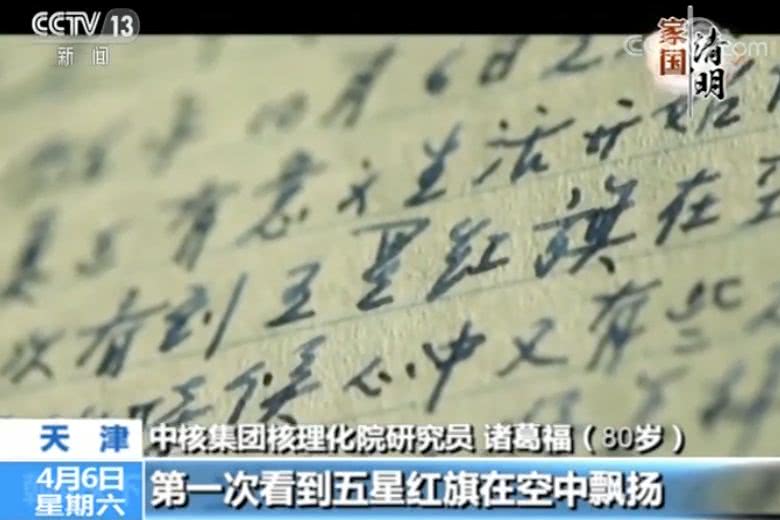 CCTV 13
新闻
家国
清明
月6日
有意义生活开始
次看到五星红旗在空
时候心中又有些
天津
中核集团核理化院研究员 诸葛福(80岁)
4月6日
星期六
第一次看到五星红旗在空中飘扬